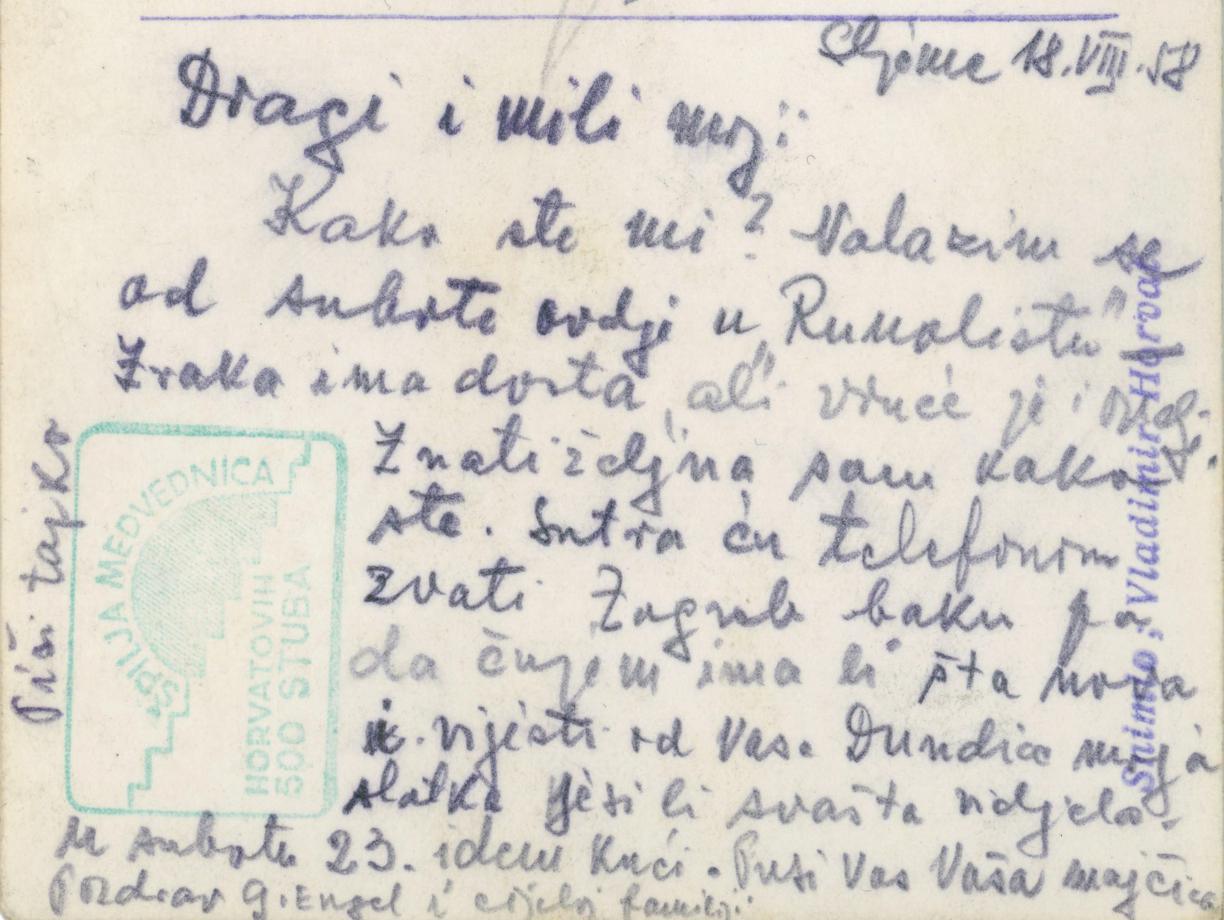 Sljeme 18.VIII.58
Dragi i mili moji:
Kako ste mi? Nalazim se
od subote ovdje u „Runolistu"
Zraka ima dosta, ali vruće je i ovdje.
Znatiželjna sam kako
ste. Sutra ću telefonom
zvati Zagreb baku pa
da čujem ima li šta nova
i vijesti od Vas. Dundica moja
slatka jesi li svašta vidjela.
U subotu 23. idem kući. Pusi Vas Vaša majčica
Pozdrav G. Engel i cijeloj familiji
Piši tajko
ŠPILJA MEDVEDNICA
HORVATOVIH
500 STUBA
Snimio: Vladimir Horvat